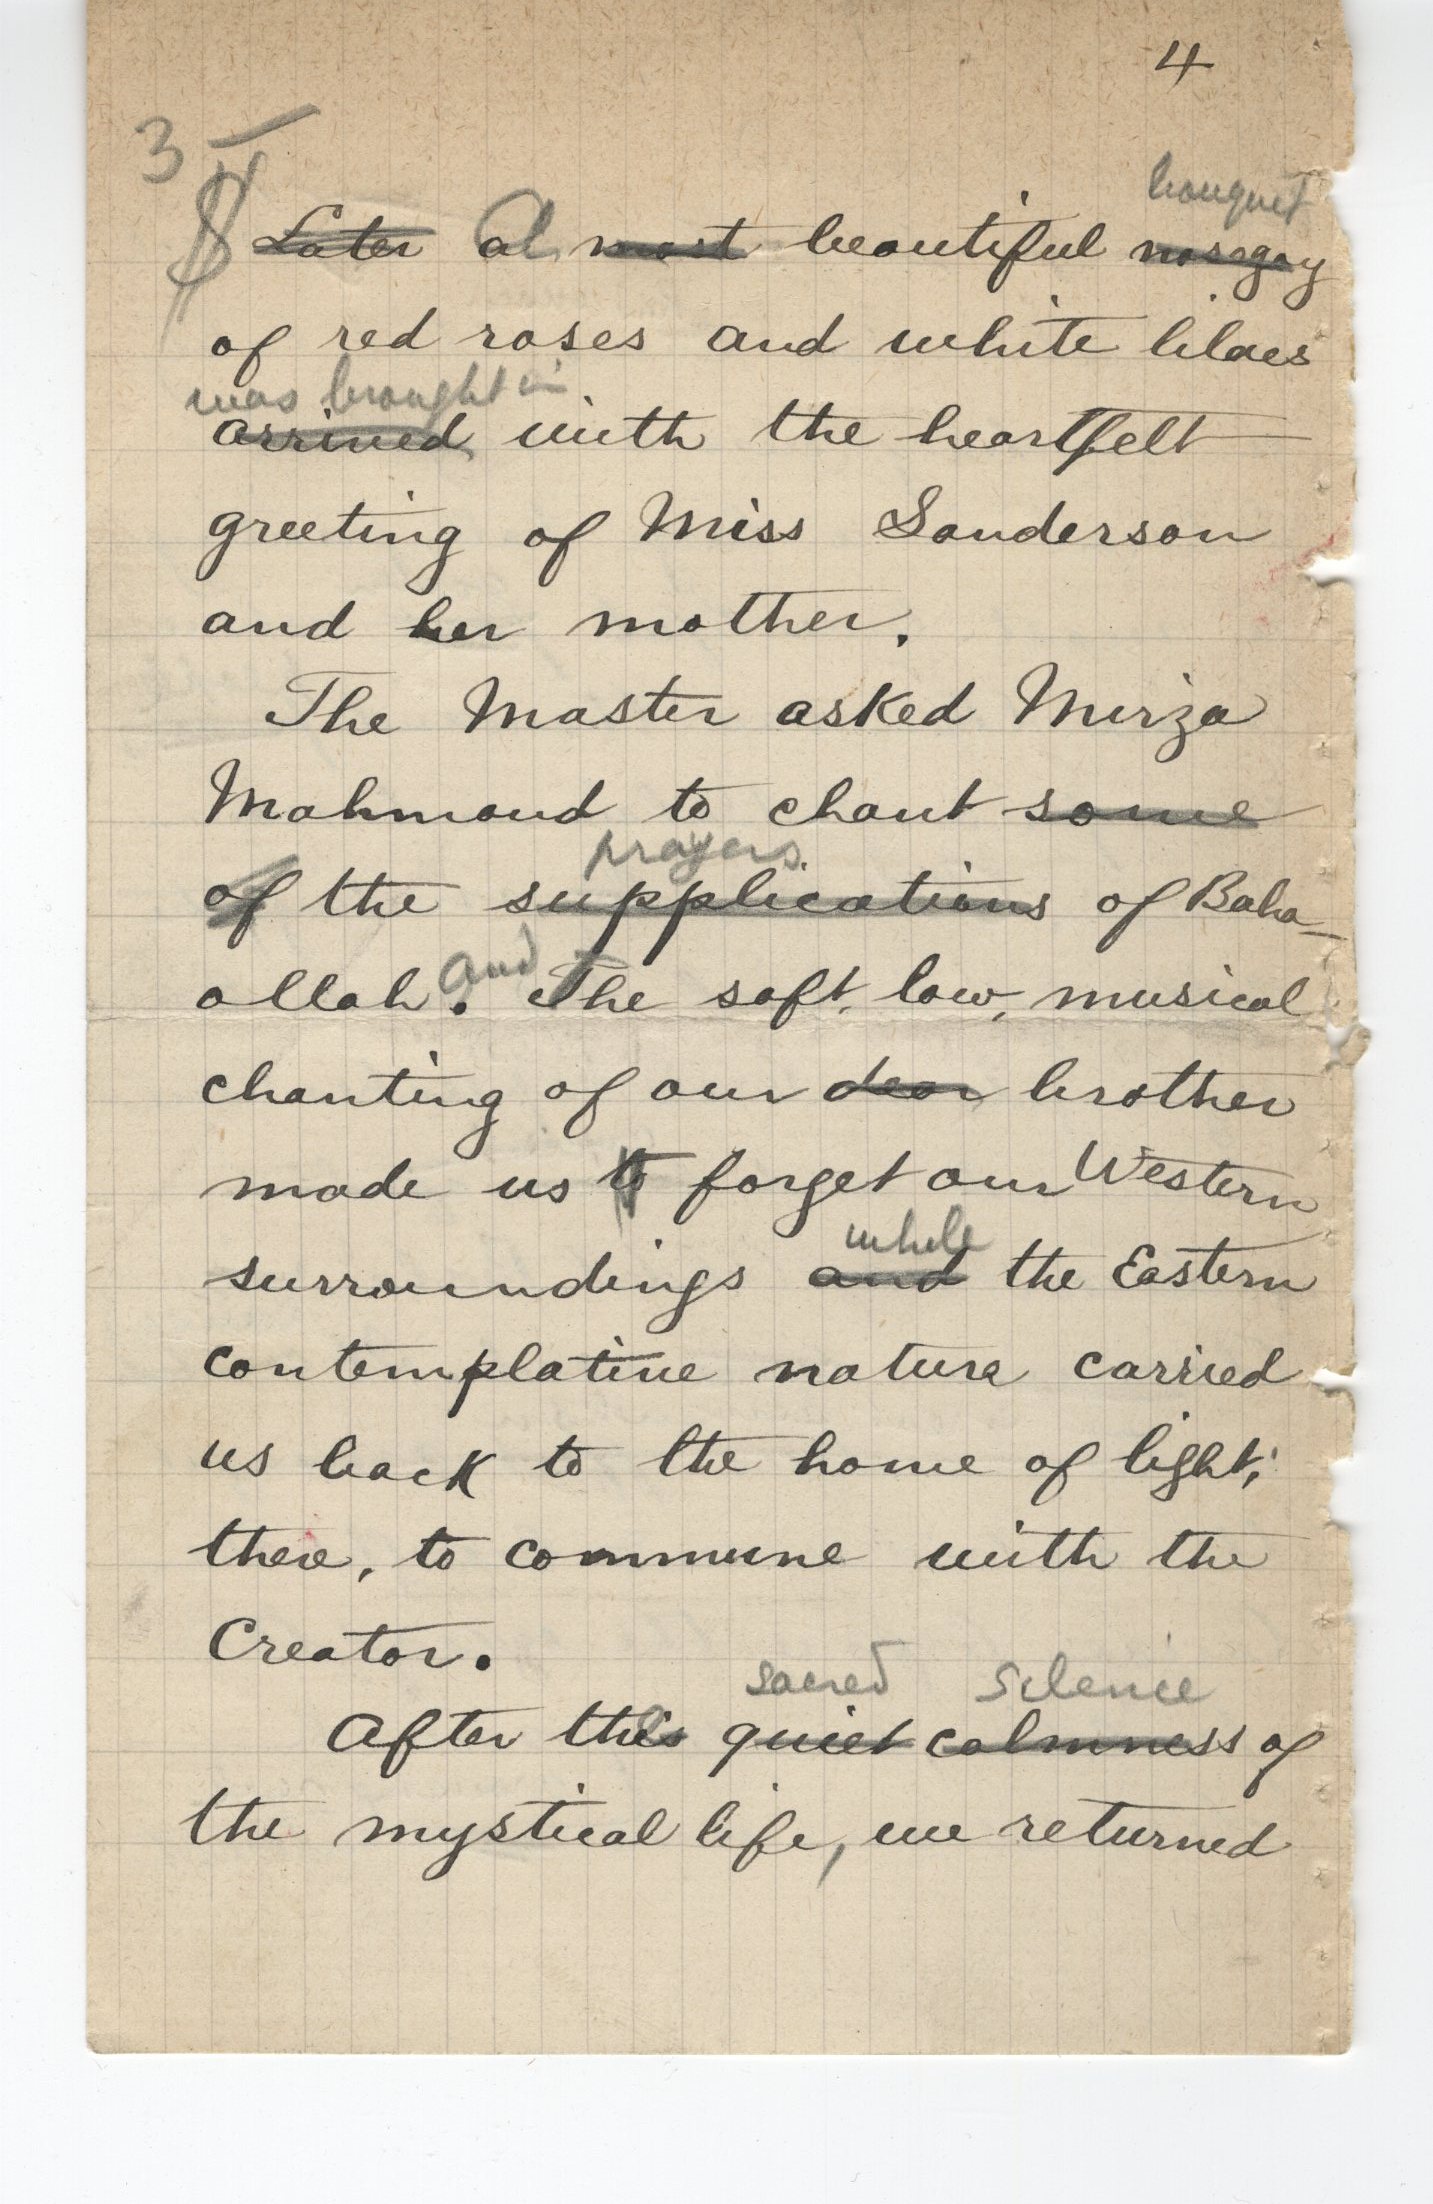 4
3
bouquet
Later A most beautiful nosegay
of red roses and white lilacs
was brought in
arrived with the heartfelt
greeting of Miss Sanderson
and her mother.
The Master asked Mirza
Mahmoud to chant some
prayers
of the supplications of Baha-
ollah. and The soft, low, musical
chanting of our dear brother
made us to forget our Western
while
surroundings and the Eastern
contemplative nature carried
us back to the home of light;
there, to commune with the
Creator.
sacred silence
After this quiet calmness of
the mystical life, we returned